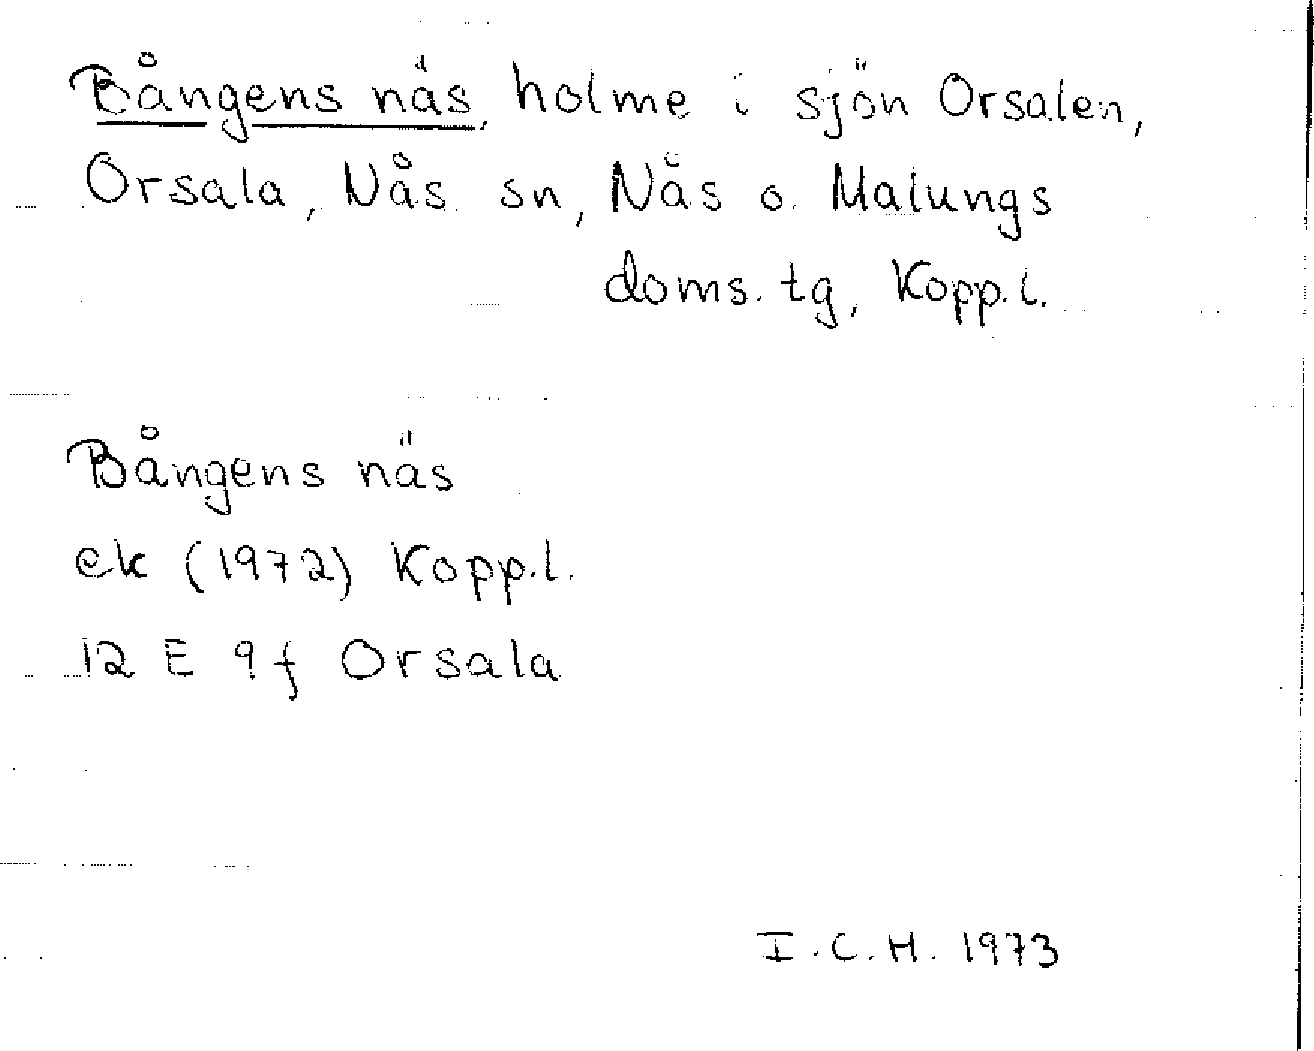 Bångens näs, holme i sjön Orsalen,
Orsala, Nås sn, Nås o. Malungs
doms. tg, Kopp. l.
Bångens näs
ek (1972) Kopp. l.
12 E 9f Orsala
I. C. H. 1973